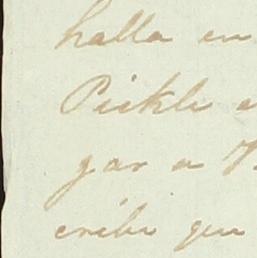 halla en
Pickle
gar a
cribe que